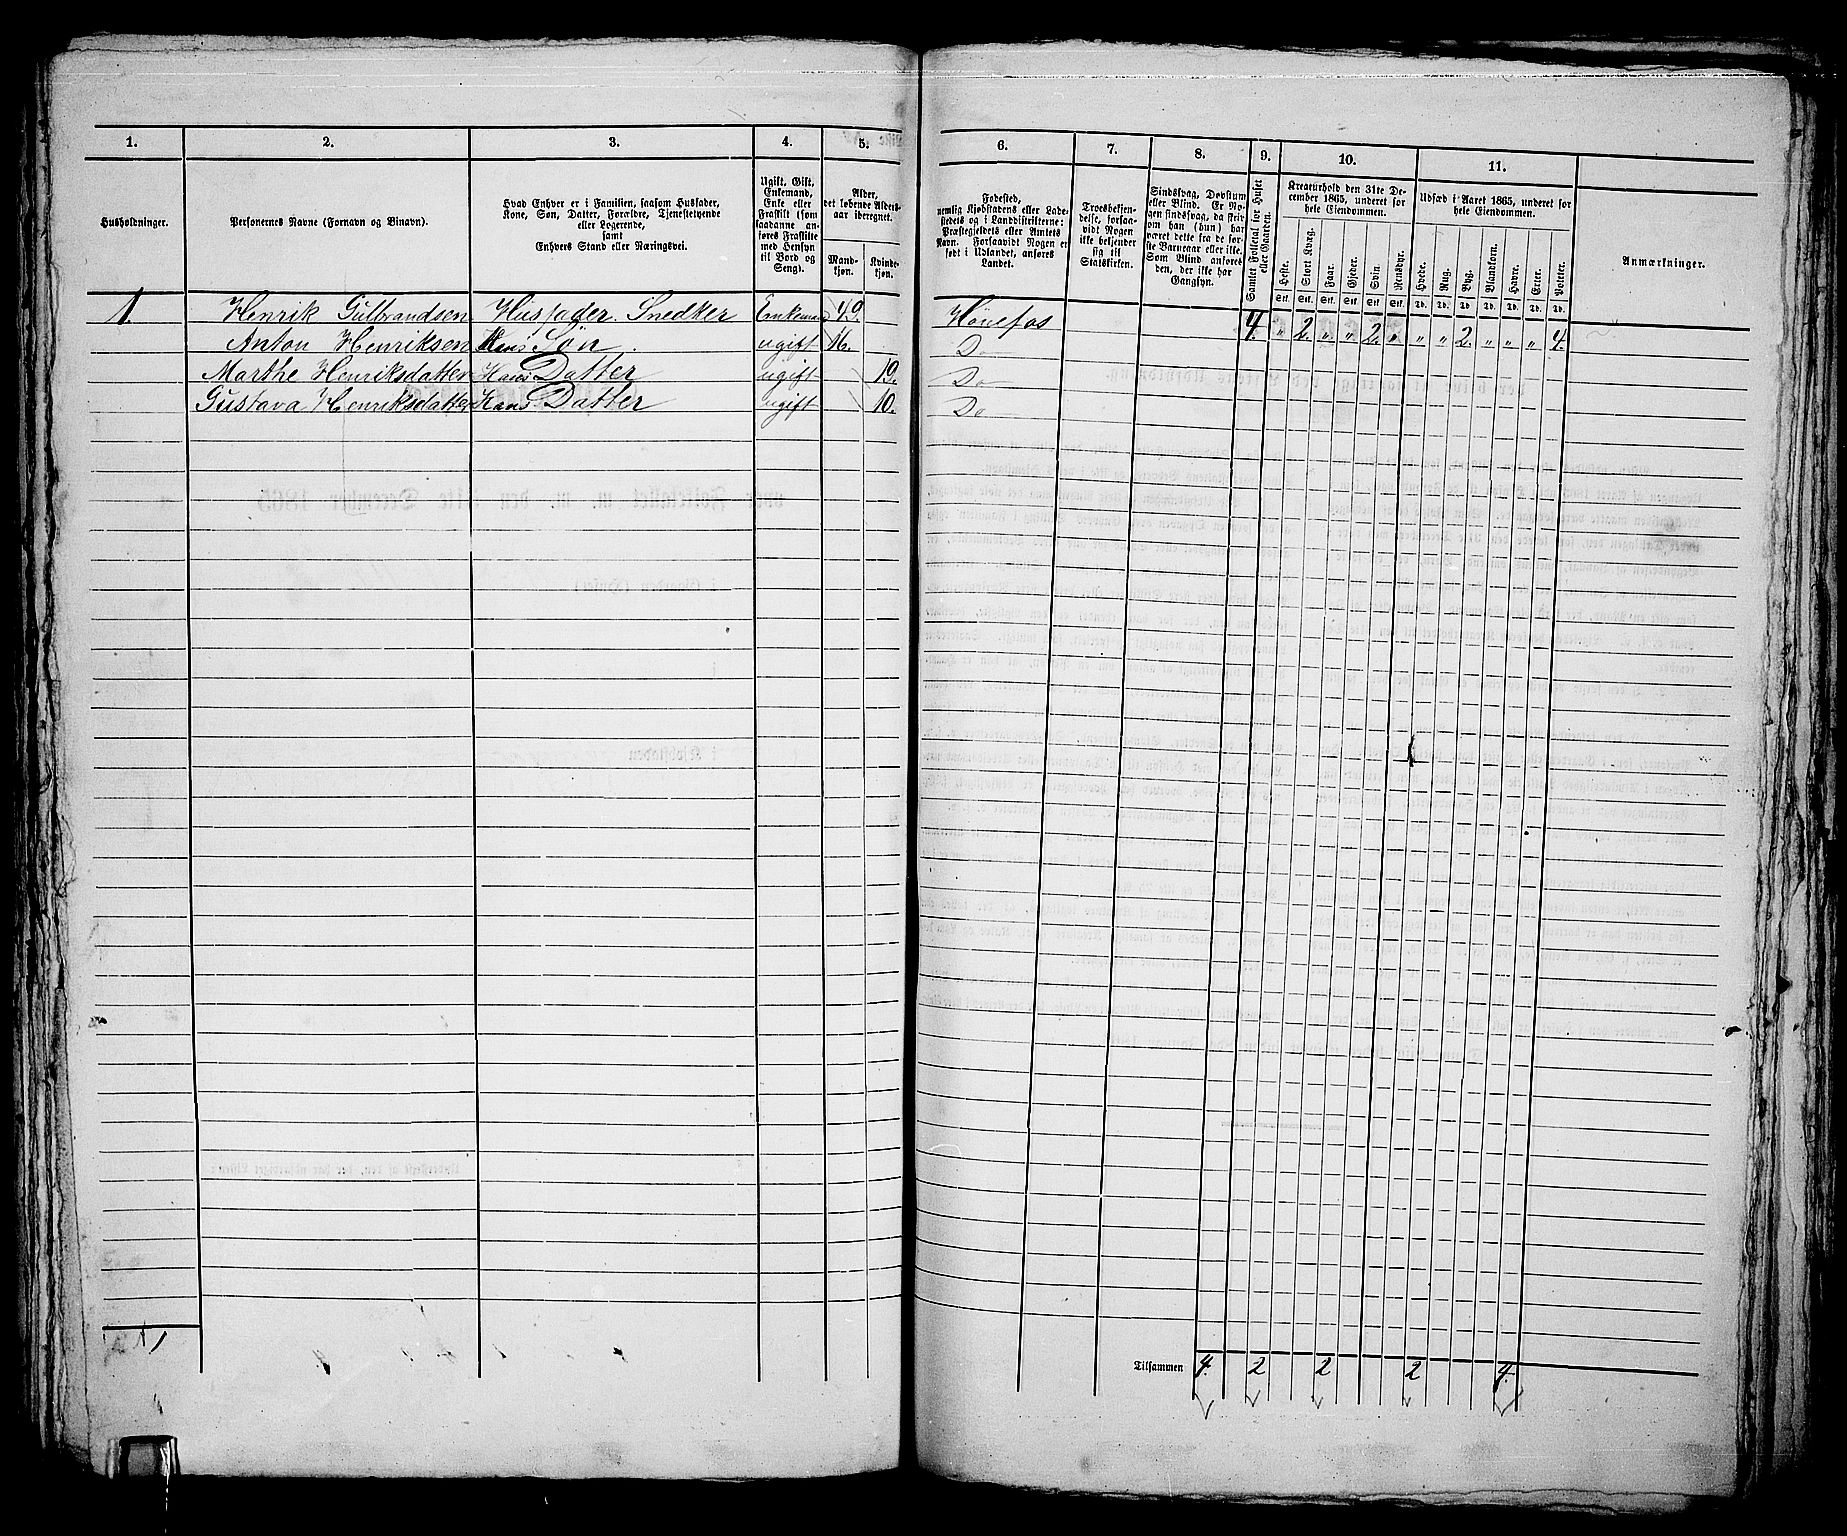 1. 2. 3. 4. 5. 6. 7. 8. 9. 10. 11.
Husholdninger.
Personernes Navne (Fornavn og Binavn).
Hvad Enhver er i Familien, saasom Husfader,
Kone, Søn, Datter, Forældre, Tjenestetyende
eller Logerende,
samt
Enhvers Stand eller Næringsvei.
Ugift, Gift,
Enkemand,
Enke eller
Fraskilt (som
saadanne an-
føres Fraskilte
med Hensyn
til Bord og
Seng).
Alder,
det løbende Alders-
aar iberegnet.
Mand-
kjøn.
Kvinde-
kjøn.
Fødested,
nemlig Kjøbstadens eller Lade-
stedets og i Landdistrikterne:
Præstegjeldets eller Amtets
Navn. Forsaavidt Nogen er
født i Udlandet, anføres
Landet.
Troesbekjen-
delse, forsaa-
vidt Nogen
ikke bekjender
sig til
Statskirken.
Sindssvag, Døvstum
eller Blind. Er No-
gen sindssvag, da skriv
om han (hun) har
været dette fra de før-
ste Barneaar eller ikke.
Som Blind anføres
den, der ikke har
Gangsyn.
Samlet Folketal for Huset
eller Gaarden.
Kreaturhold den 31te De-
cember 1865, underet for
hele Eiendommen.
Heste. Stort Kvæg. Faar. Gjeder. Svin. Rensdyr.
Stk. Stk. Stk. Stk. Stk. Stk.
Udsæd i Aaret 1865, underet for
hele Eiendommen.
Hvede. Rug. Byg. Blandkorn. Havre. Erter. Poteter.
Td. Td. Td. Td. Td. Td. Td.
Anmærkninger.
1. Henrik Gulbrandsen Husfader. Snedker Enkemand 49. Hønefos 4. " 2. " " 2. " " " 2. " " " 4.
Anton Henriksen Hans Søn. ugift 16. Do
Marthe Henriksdatter Hans Datter ugift 19. Do
Gustava Henriksdatter Hans Datter ugift 10. Do
Tilsammen 4. 2 2 2 4.